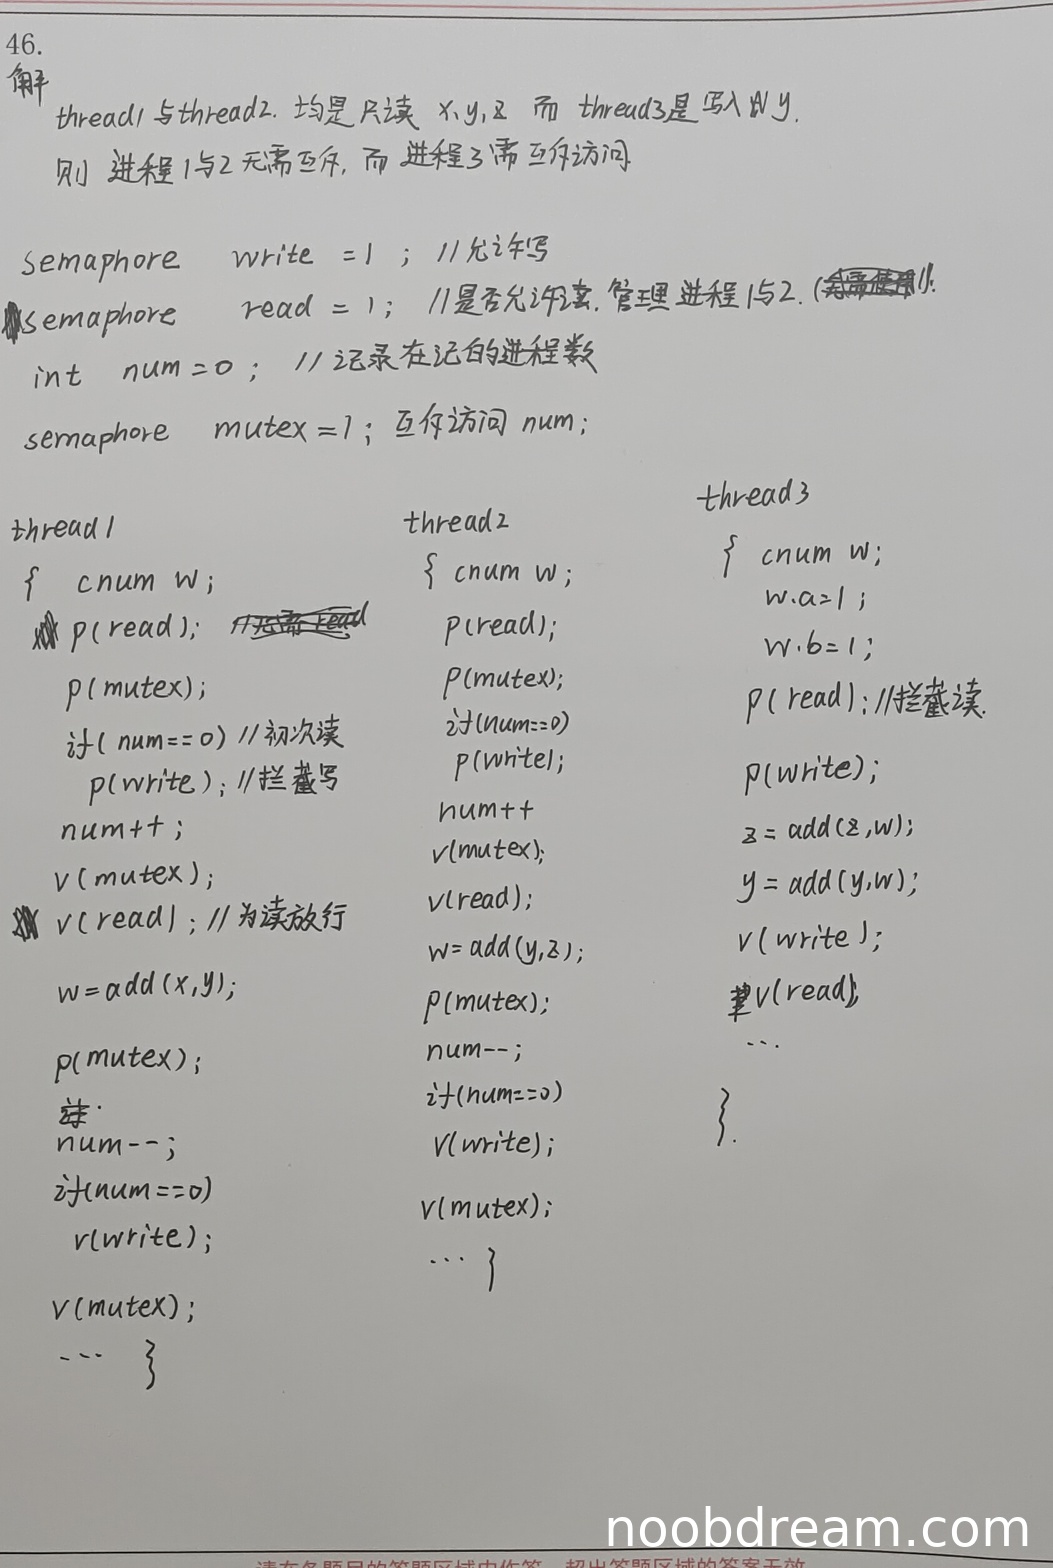 46.
解
thread1与thread2.均是只读 x,y,z 而 thread3是写入的y.
则 进程1与2无需互斥,而 进程3需互斥访问.
semaphore write =1 ; //允许写
semaphore read = 1; //是否允许读.管理进程1与2.
int num=0 ; // 记录在记的进程数
semaphore mutex=1; 互斥访问 num;
thread1
{ cnum w;
p(read);
p(mutex);
if( num==0) //初次读
p(write); //拦截写
num++;
v(mutex);
v(read); //为读放行
w=add(x,y);
p(mutex);
num--;
if(num==0)
v(write);
v(mutex);
... }
thread2
{ cnum w;
p(read);
p(mutex);
if(num==0)
p(write);
num++
v(mutex);
v(read);
w=add(y,z);
p(mutex);
num--;
if(num==0)
v(write);
v(mutex);
... }
thread3
{ cnum w;
w.a=1;
w.b=1;
p(read); //拦截读.
p(write);
z=add(z,w);
y=add(y,w);
v(write);
v(read);
...
}.
请在各题目的答题区域内作答,超出答题区域的答案无效
noobdream.com